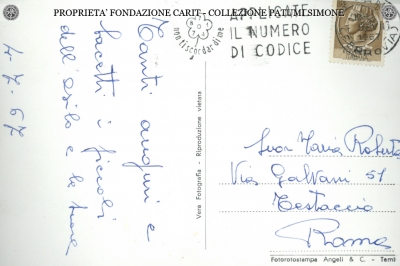 PROPRIETA' FONDAZIONE CARIT - COLLEZIONE PATUMI SIMONE
nontiscordardime
APPLICATE
IL NUMERO
DI CODICE
4-7-67
Tanti auguri e
bacetti i piccoli
dell'asilo e le suore
Vera Fotografia - Riproduzione vietata
Suor Maria Roberta
Via Galvani 51
Testaccio
Roma
Fotorotostampe Angeli & C. - Terni